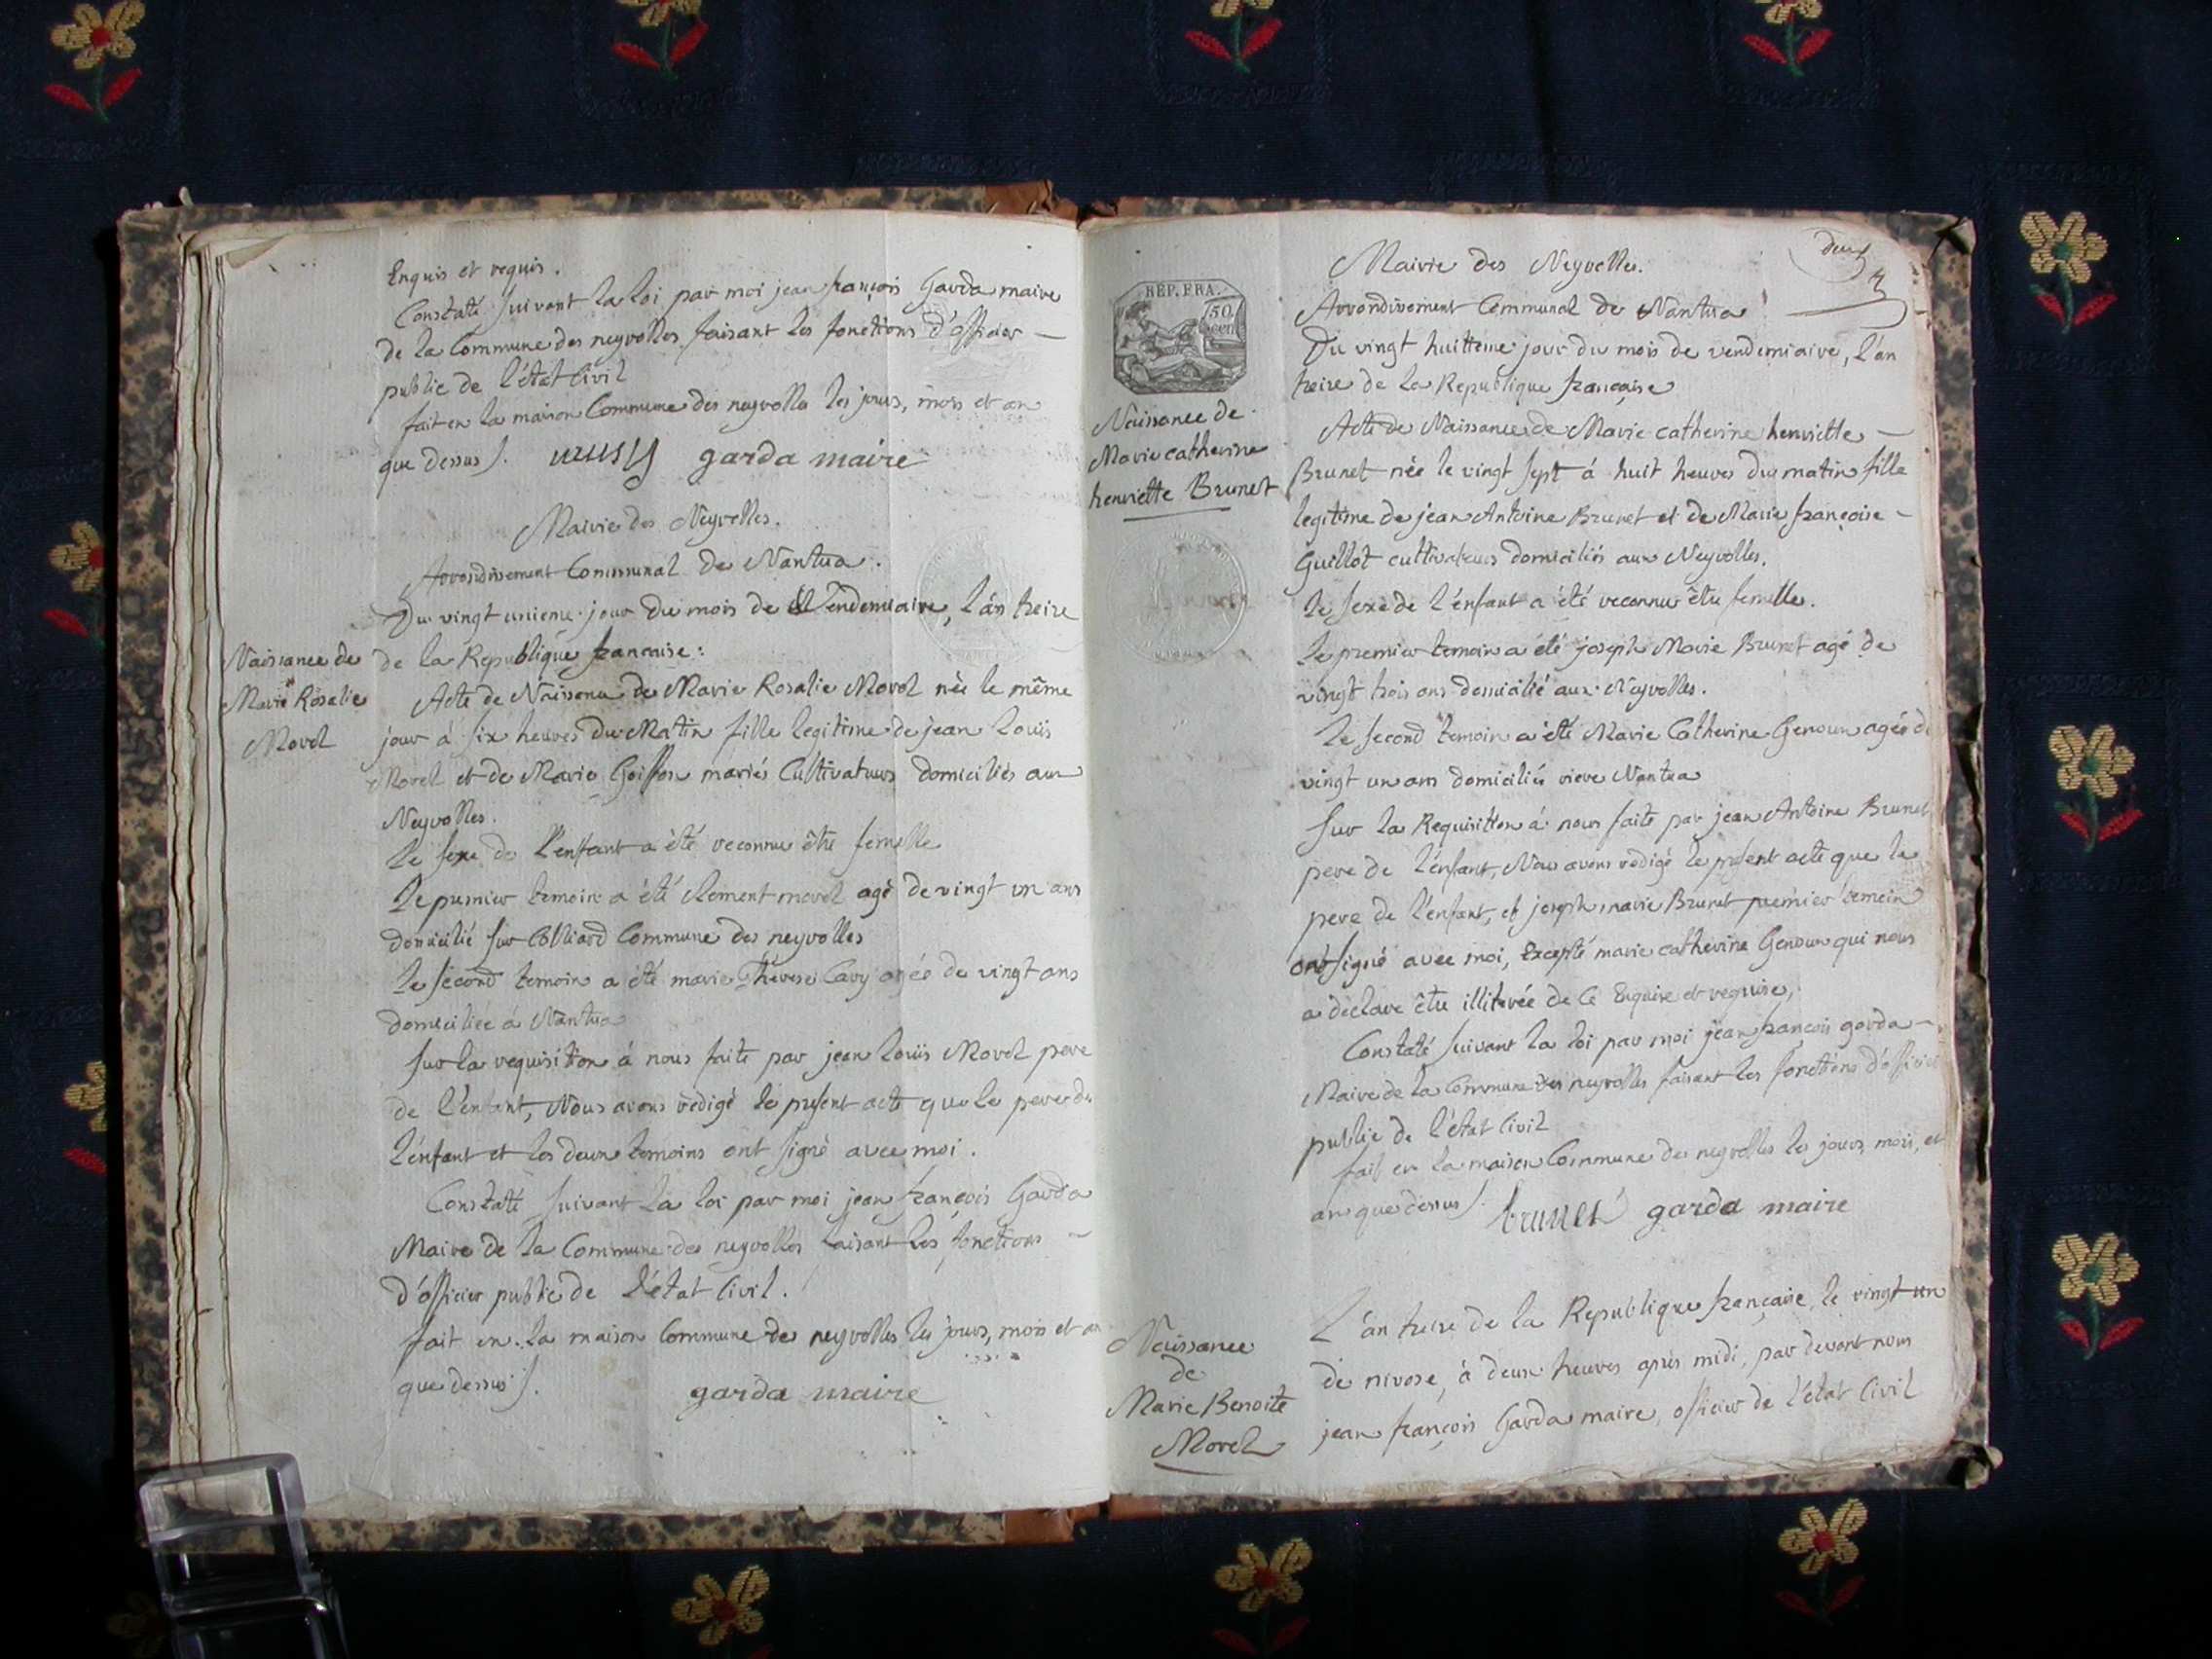 Enquis et requis.
Constaté suivant la loi par moi jean françois Garda maire
de la Commune des neyrolles faisant les fonctions d'officier —
public de l'état Civil
fait en la maison Commune des neyrolles les jours, mois et an
que dessus /. garda maire
Mairie des Neyrolles.
Arrondissement Communal de Nantua.
Du vingt unieme jour du mois de Vendemiaire, l'án treize
Naissance de
Marie Rosalie
Morel
de la République francaise:
Acte de Naissance de Marie Rosalie Morel née le même
jour á six heures du Matin fille legitime de jean Loüis
Morel et de Marie Goiffon mariés Cultivateurs domiciliés aux
Neyrolles.
Le sexe de l'enfant a été reconnu être femelle
Le premier temoin a été Clement morel agé de vingt un ans
domicilié sur Colliard Commune des neyrolles
Le second temoin a été marie Thérese Cavy agée de vingt ans
domiciliée á Nantua
Sur la requisition á nous faite par jean Loüis Morel pere
de l'enfant, Nous avons rédigé le present acte que le pere de
l'énfant et les deux temoins ont signé avec moi.
Constaté suivant la loi par moi jean françois Garda
Maire de la Commune des neyrolles faisant les fonctions —
d'officier public de l'état Civil.
fait en la maison Commune des neyrolles les jours, mois et an
que dessus /. garda maire
deux
2
REP. FRA.
50
cen
Naissance de
Marie catherine
henriette Brunet
Mairie des Neyrolles.
Arrondissement Communal de Nantua
Du vingt huitieme jour du mois de vendemiaire, l'an
treize de la Republique française
Acte de Naissance de Marie catherine henriette —
Brunet née le vingt sept á huit heures du matin fille
legitime de jean Antoine Brunet et de Marie françoise —
Guillot cultivateurs domiciliés aux Neyrolles.
Le sexe de l'enfant a été reconnu être femelle.
Le premier temoin a été joseph Marie Brunet agé de
vingt trois ans domicilié aux Neyrolles.
Le second temoin a été Marie Catherine Genoux agée de
vingt un ans domiciliée riere Nantua
Sur la Requisition á nous faite par jean Antoine Brunet
pere de l'énfant, Nous avons rédigé le present acte que le
pere de l'énfant, et joseph marie Brunet premier temoin
ont signé avec moi, Excepté marie catherine Genoux qui nous
a déclaré être illiterée de ce Enquise et requise,
Constaté suivant la loi par moi jean françois garda —
Maire de la Commune des neyrolles faisant les fonctions d'officier
public de l'état Civil
fait en la maison Commune des neyrolles les jours, mois, et
an que dessus /. brunet garda maire
Naissance
de
Marie Benoite
Morel
L'án treize de la Republique française, le vingt un
de nivose, á deux heures après midi, par devant nous
jean françois Garda maire, officier de l'état Civil